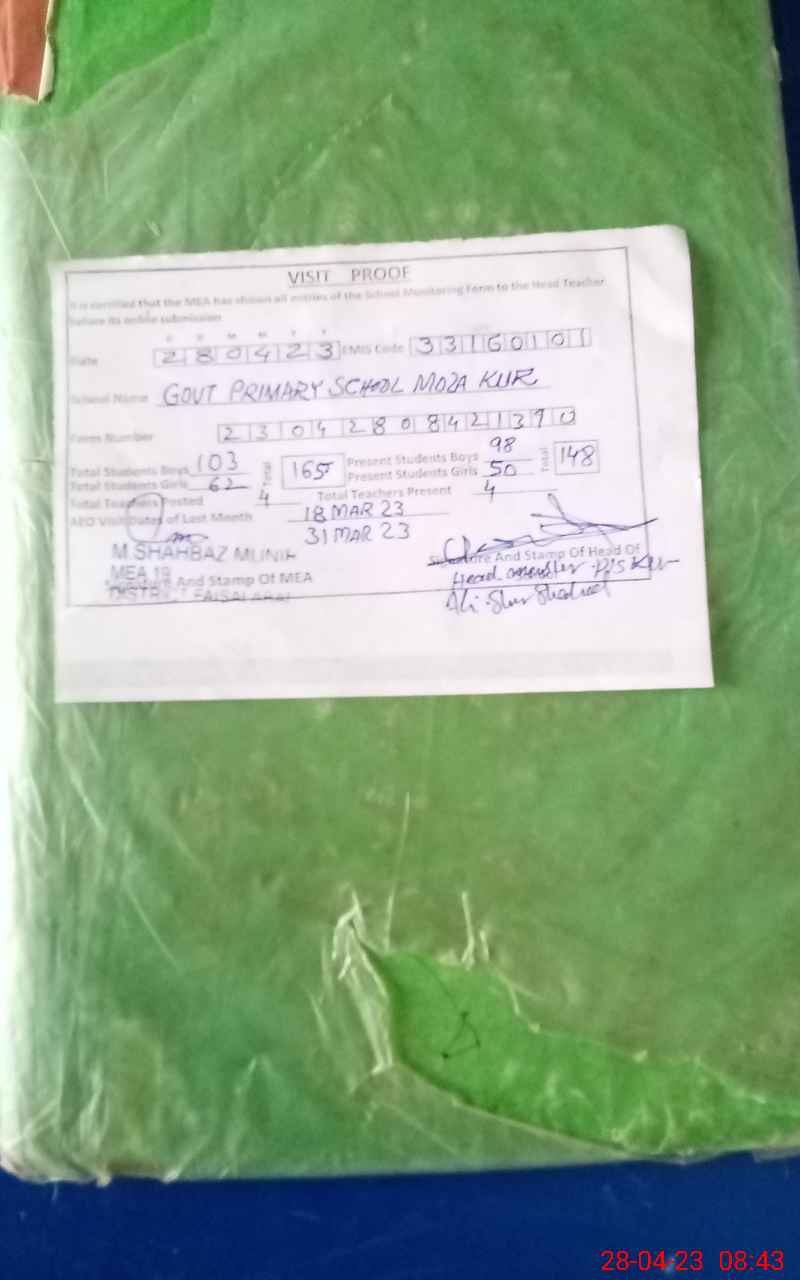 VISIT PROOF
It is certified that the MEA has shown all entries of the School Monitoring Form to the Head Teacher
before its online submission
D D M M Y Y
Date 280423 EMIS Code 33160101
School Name GOVT PRIMARY SCHOOL MOZA KUR
Form Number 230428084213 0
Total Students Boys 103 Total 165 Present Students Boys 98 Total 148
Total Students Girls 62 Present Students Girls 50
Total Teachers Posted 4 Total Teachers Present 4
AEO Visit Dates of Last Month 18 MAR 23
31 MAR 23
M SHAHBAZ MUNIR
MEA 19
Signature And Stamp Of MEA
DISTRICT FAISALABAD
Signature And Stamp Of Head Of
Head
Ali Sher
28-04-23 08:43